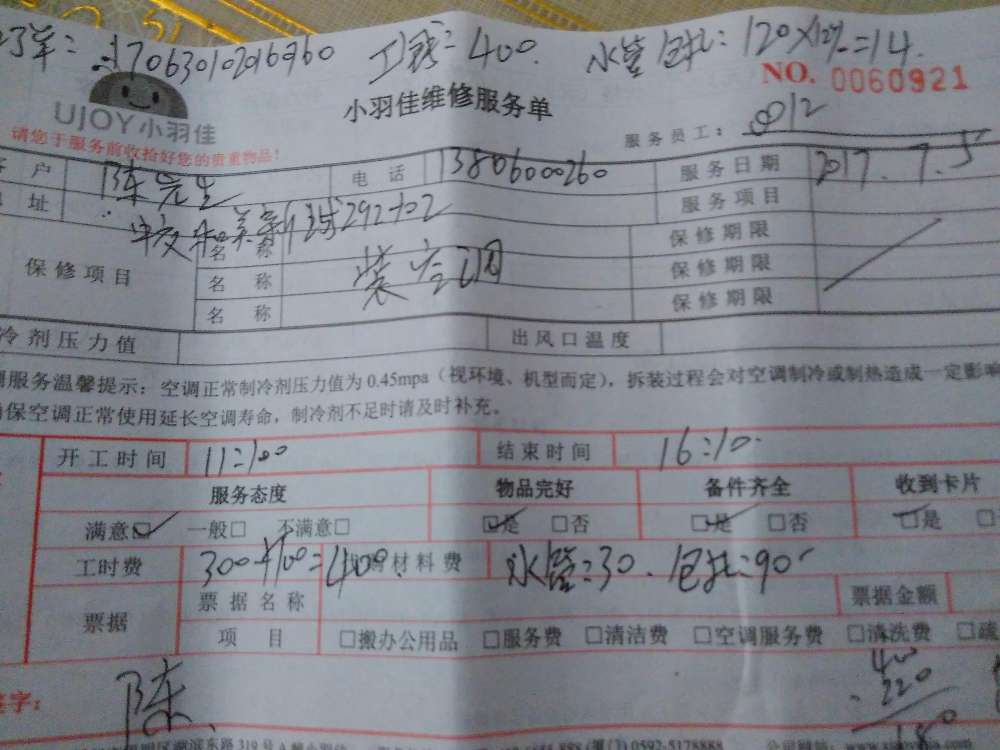 17063010216960 工钱:400. 水管包扎:120×12%=14.
NO. 0060921
UJOY小羽佳
小羽佳维修服务单
请您于服务前收拾好您的贵重物品!
服务员工: 8012
户 陈先生 电话 13806000260 服务日期 2017.7.5
址 292-102 服务项目
保修项目
名称 保修期限
名称 装空调 保修期限
名称 保修期限
冷剂压力值 出风口温度
调服务温馨提示:空调正常制冷剂压力值为0.45mpa(视环境、机型而定),拆装过程会对空调制冷或制热造成一定影响
保空调正常使用延长空调寿命,制冷剂不足时请及时补充。
开工时间 11:00 结束时间 16:10
服务态度 物品完好 备件齐全 收到卡片
满意☑ 一般□ 不满意□ ☑是 □否 ☑是 □否 ☑是 □
工时费 300+100=400 材料费 水管:30. 包扎:90
票据 票据名称 票据金额
项目 □搬办公用品 □服务费 □清洁费 □空调服务费 □清洗费 □疏
签字: 陈
400
220
180
东路319号A 0592-5178888